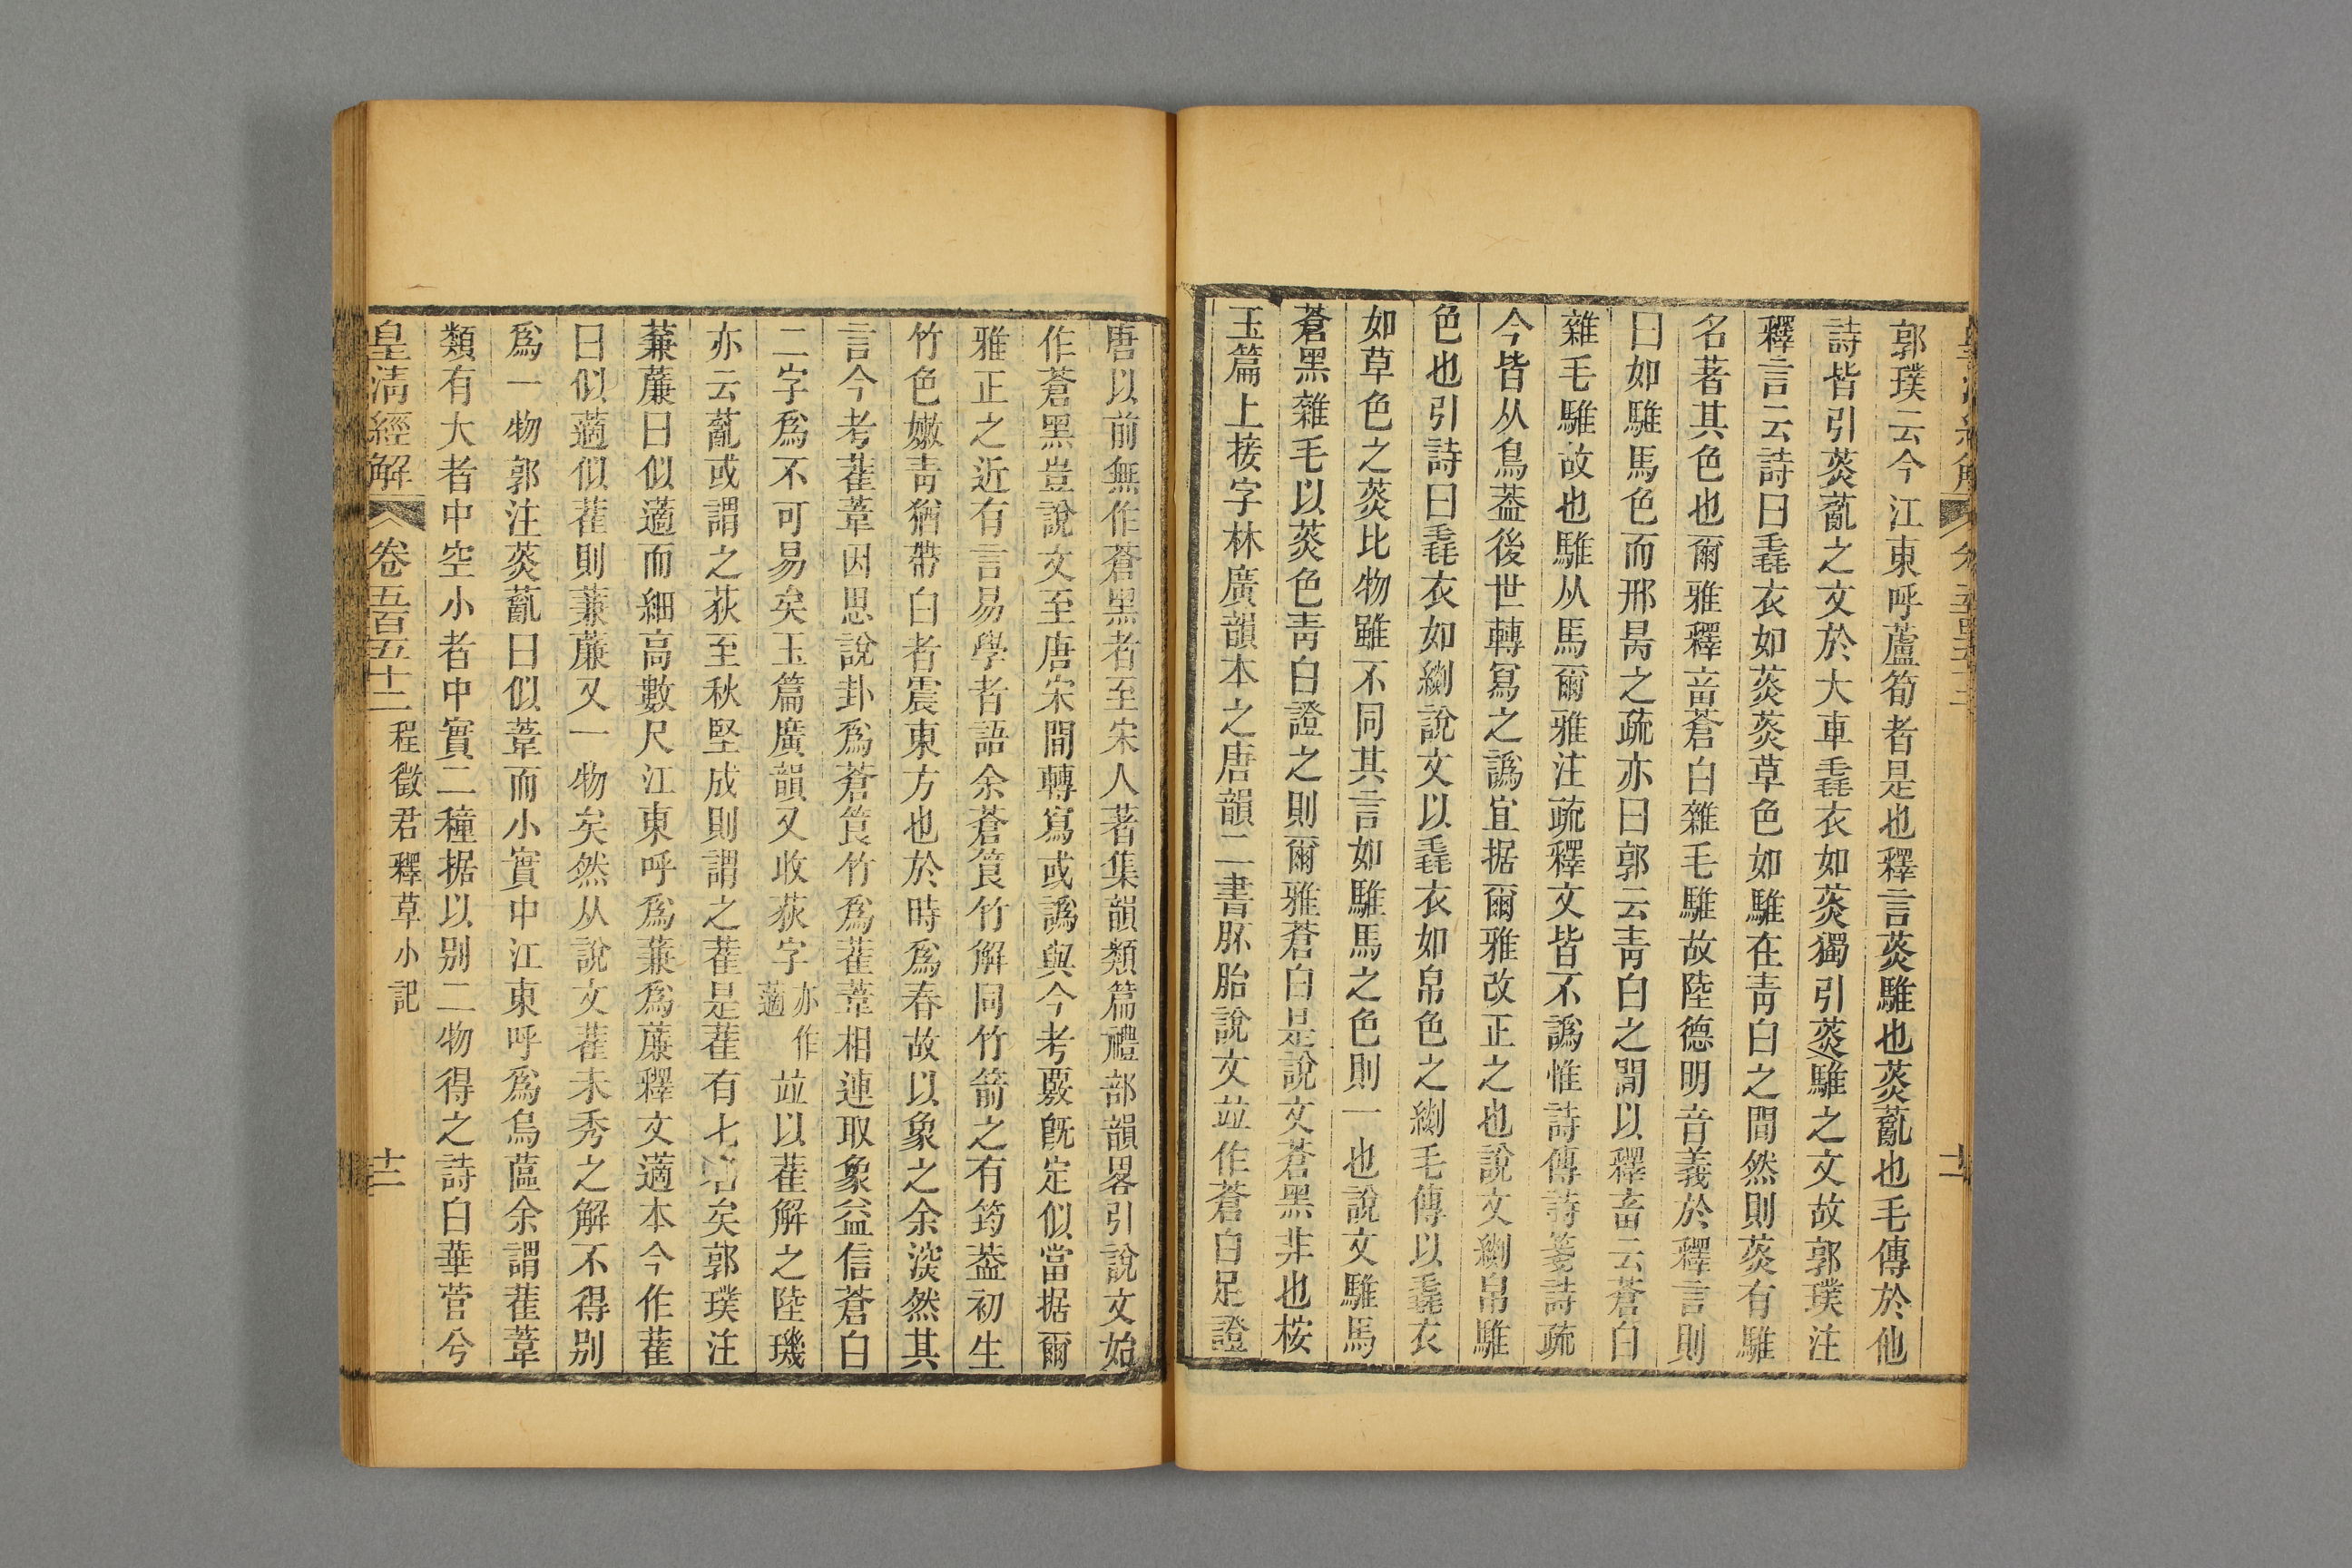 郭璞云今江東呼蘆筍者是也釋言菼騅也菼薍也毛傳於他
詩皆引菼薍之文於大車毳衣如菼獨引菼騅之文故郭璞注
釋言云詩曰毳衣如菼菼草色如騅在靑白之間然則菼有騅
名著其色也爾雅釋畜蒼白雜毛騅故陸德明音義於釋言則
曰如騅馬色而邢昺之疏亦曰郭云靑白之間以釋畜云蒼白
雜毛騅故也騅从馬爾雅注疏釋文皆不譌惟詩傳詩箋詩疏
今皆从鳥葢後世轉寫之譌宜据爾雅改正之也說文䌨帛騅
色也引詩曰毳衣如䌨說文以毳衣如帛色之䌨毛傳以毳衣
如草色之菼比物雖不同其言如騅馬之色則一也說文騅馬
蒼黑雜毛以菼色靑白證之則爾雅蒼白是說文蒼黑非也桉
玉篇上接字林廣韻本之唐韻二書胚胎說文竝作蒼白足證
唐以前無作蒼黑者至宋人著集韻類篇禮部韻畧引說文始
作蒼黑豈說文至唐宋間轉寫或譌與今考覈旣定似當据爾
雅正之近有言易學者語余蒼筤竹解同竹箭之有筠葢初生
竹色嫩靑猶帶白者震東方也於時爲春故以象之余淡然其
言今考萑葦因思說卦爲蒼筤竹爲萑葦相連取象益信蒼白
二字爲不可易矣玉篇廣韻又收荻字亦作藡竝以萑解之陸璣
亦云薍或謂之荻至秋堅成則謂之萑是萑有七名矣郭璞注
蒹薕曰似藡而細高數尺江東呼爲蒹爲薕釋文藡本今作萑
曰似藡似萑則蒹薕又一物矣然从說文萑未秀之解不得別
爲一物郭注菼薍曰似葦而小實中江東呼爲烏蓲余謂萑葦
類有大者中空小者中實二種据以別二物得之詩白華菅兮
皇淸經解
卷五百五十二
程徵君釋草小記
十二